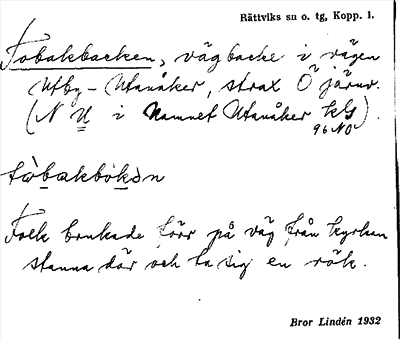 Rättviks sn o. tg, Kopp. l.
Tobakbacken, vägbacke i vägen
Utby – Utanåker, strax Ö järnv.
(N U i namnet Utanåker kls).
96 NO
tòbakbòkən
Folk brukade förr på väg från kyrkan
stanna där och ta sig en rök.
Bror Lindén 1932